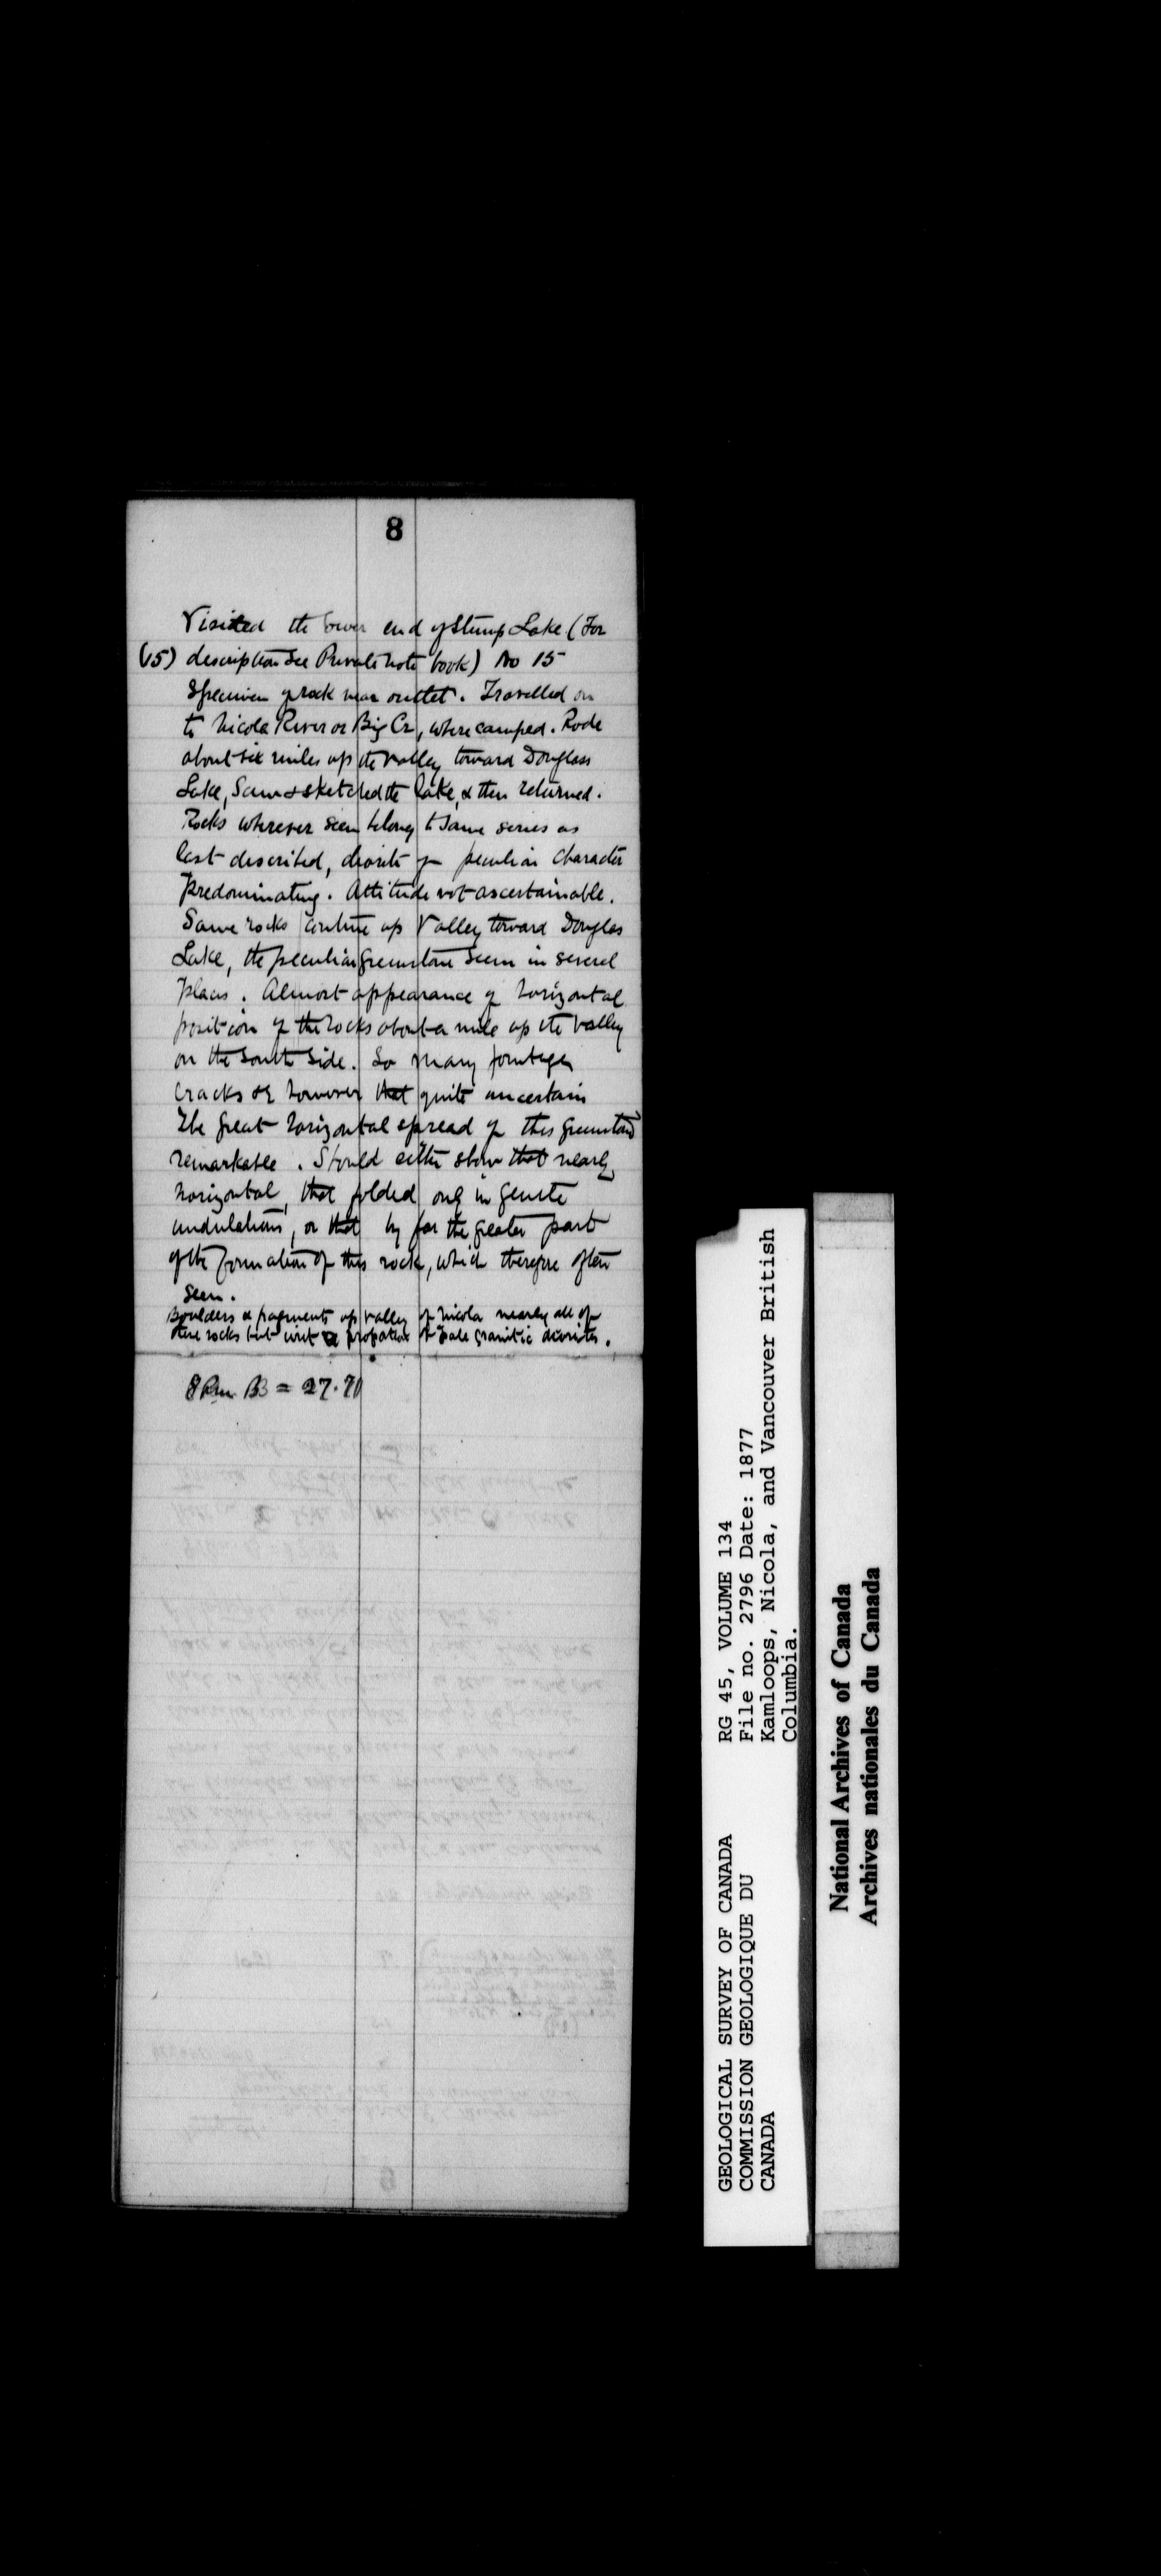 8
Visited the lower end of Stump Lake (For
(15) description see Private note book) No 15
Specimen of rock near outlet. Travelled on
to Nicola River or Big Cr, where camped. Rode
about six miles up the valley toward Douglass
Lake, Saw & sketched the lake, & then returned.
Rocks wherever seen belong to same series as
last described, diorite of peculiar character
predominating. Attitude not ascertainable.
Same rocks continue up Valley toward Douglas
Lake, the peculiar greenstone seen in several
places. Almost appearance of horizontal
position of the rocks about a mile up the valley
on the South Side. So many
cracks &c however that quite uncertain
The great horizontal spread of this greenstone
remarkable. Should either show that nearly
horizontal, that folded only in gentle
undulations, or that by far the greater part
of the formation of this rock, which therefore often
seen.
Boulders & fragments up valley of Nicola nearly all of
these rocks but with a proportion of pale granitic diorites.
8 P.m. B3 = 27.71
GEOLOGICAL SURVEY OF CANADA
COMMISSION GEOLOGIQUE DU
CANADA
RG 45, VOLUME 134
File no. 2796 Date: 1877
Kamloops, Nicola, and Vancouver British
Columbia.
National Archives of Canada
Archives nationales du Canada